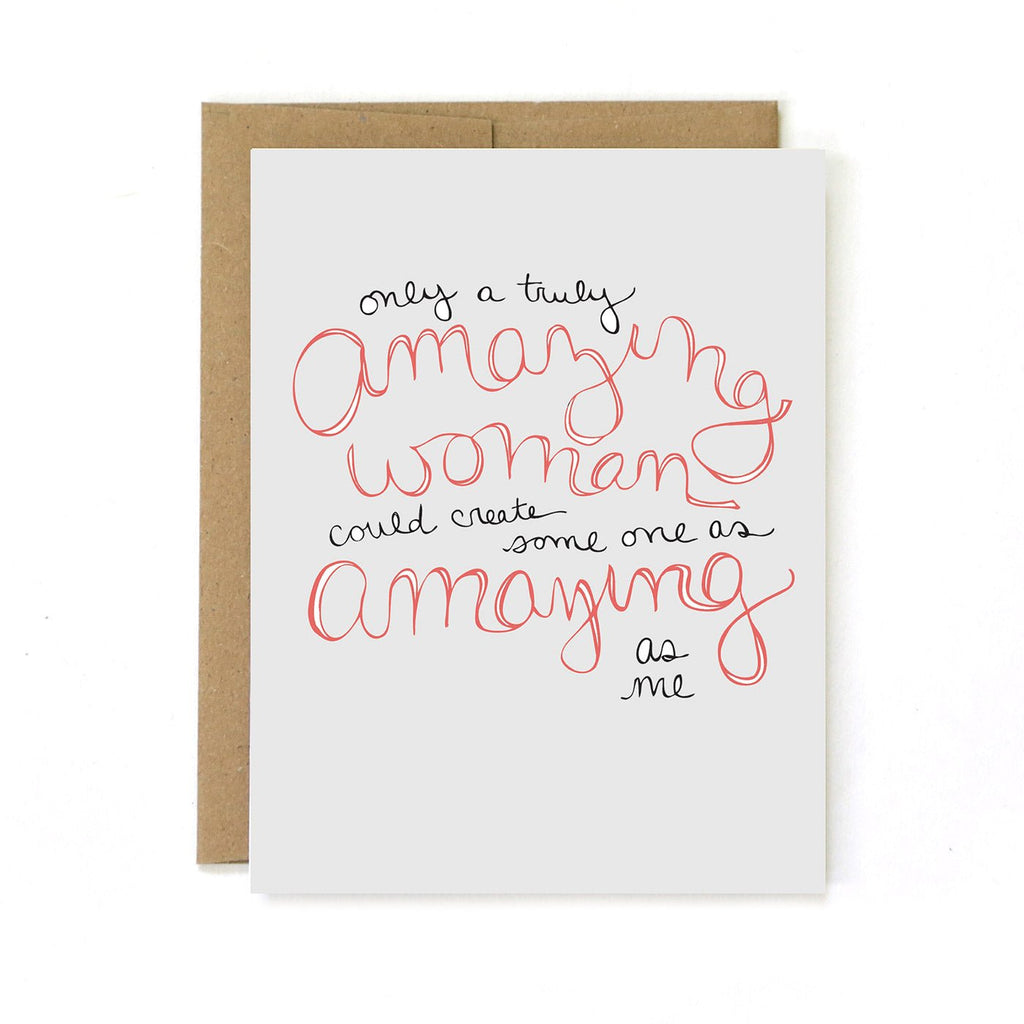 only a truly
amazing
woman
could create
some one as
amazing
as
me